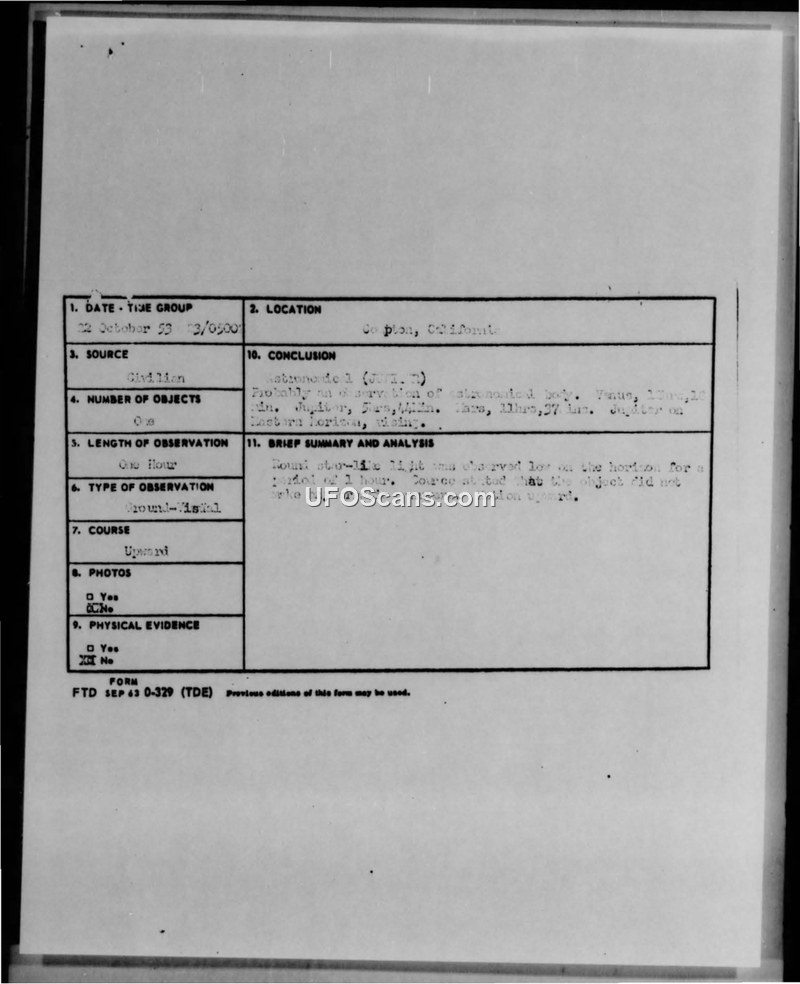 1. DATE - TIME GROUP
22 October 53 23/0500
2. LOCATION
Compton, California
3. SOURCE
Civilian
10. CONCLUSION
Astronomical (JUPITER)
Probably an observation of astronomical body. Venus,
min. Jupiter, 5hrs,44min. 11hrs,37 Jupiter on
Eastern horizon, rising.
4. NUMBER OF OBJECTS
One
5. LENGTH OF OBSERVATION
One Hour
11. BRIEF SUMMARY AND ANALYSIS
Round star-like light was observed low on the horizon for a
period of 1 hour. Source stated that the object did not
upward.
6. TYPE OF OBSERVATION
Ground-Visual
7. COURSE
Upward
8. PHOTOS
□ Yes
No
9. PHYSICAL EVIDENCE
□ Yes
No
FORM
FTD SEP 63 0-329 (TDE) Previous editions of this form may be used.
UFOScans.com